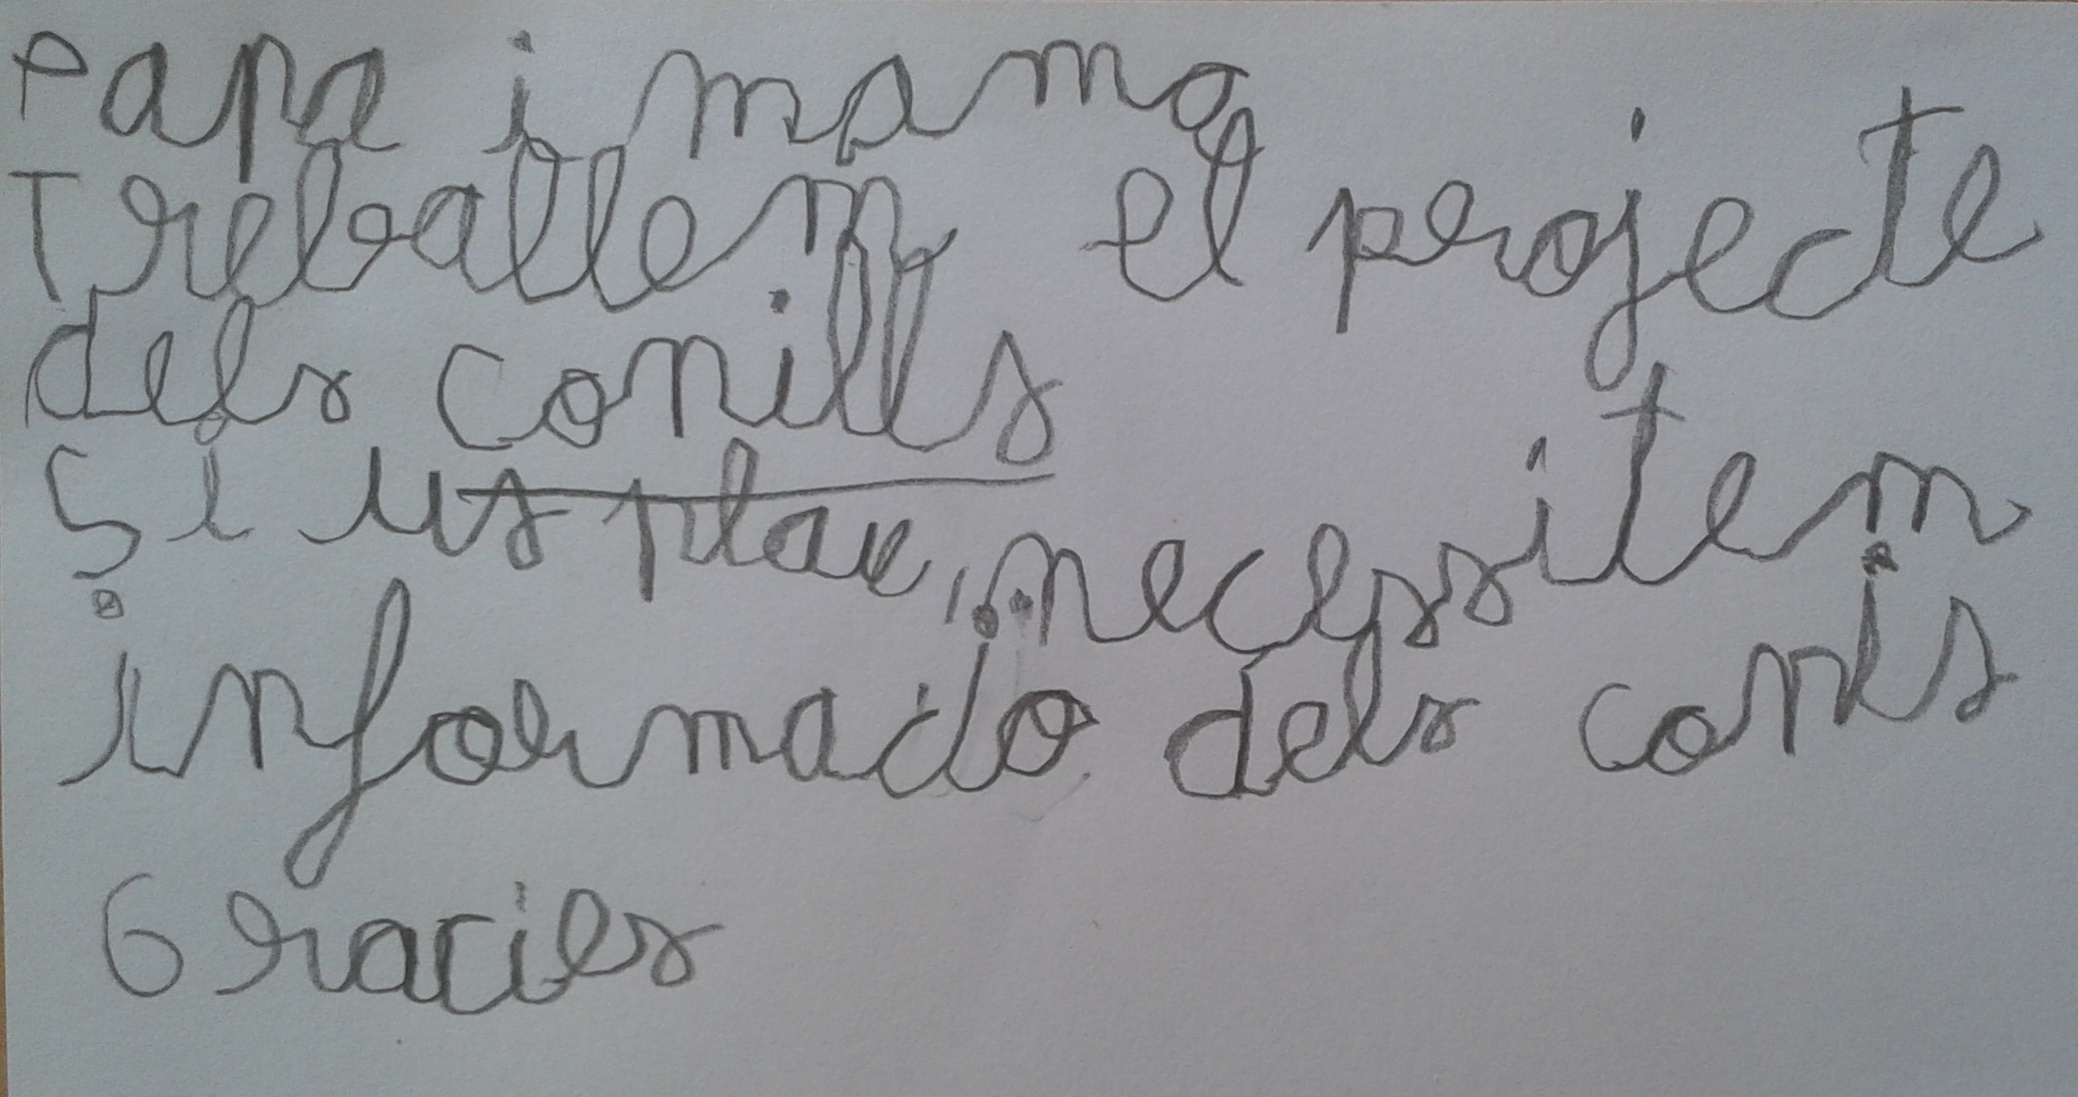 Papa i mama
Treballem el projecte
dels conills
Si us plau, necessitem
informacio dels conis
Gracies